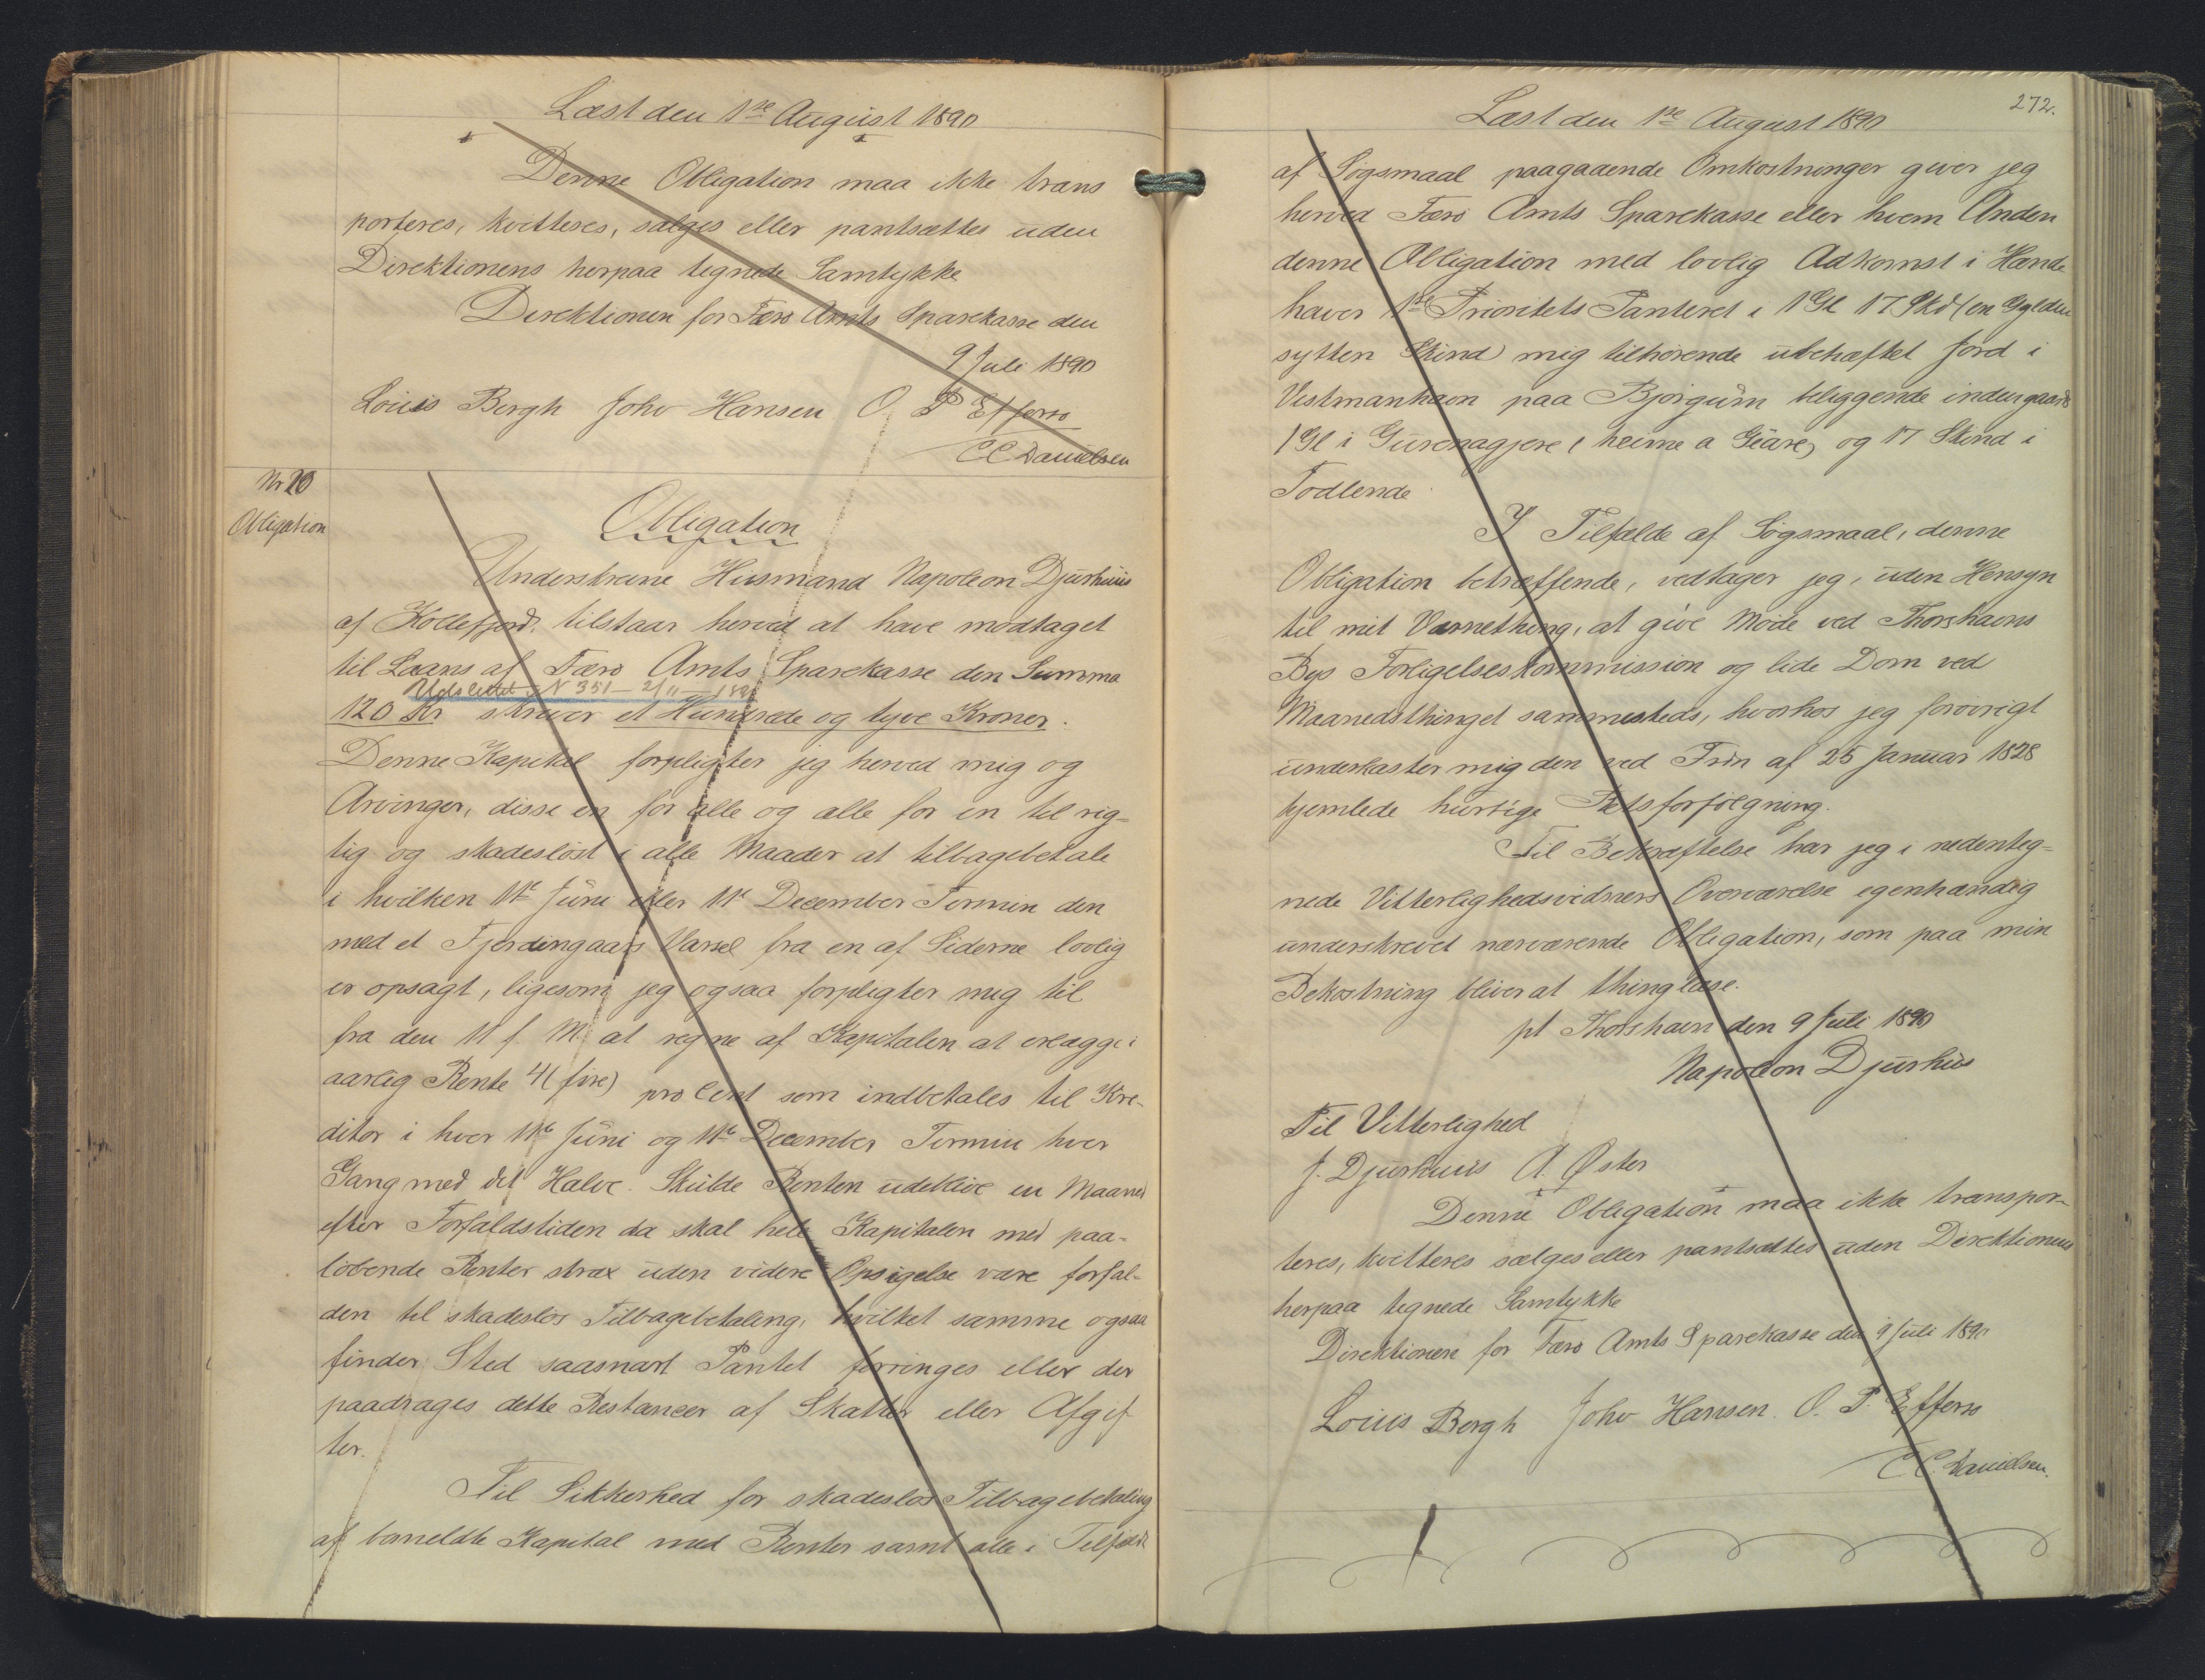 Læst den 1ste August 1890
Denne Obligation maa ikke trans
porteres, kvitteres, sælges eller pantsættes uden
Direktionens herpaa tegnede Samtykke
Direktionen for Færø Amts Sparekasse den
9 Juli 1890
Louis Bergh Johs Hansen O. P Effersø
C C Danielsen
Nr 20
Obligation
Obligation
Underskrevne Husmand Napoleon Djurhuus
af Kollefjord, tilstaar herved at have modtaget
til Laans af Færø Amts Sparekasse den Summa
Udslettet N 351 – 2/11
120 Kr skriver et Hundrede og tyve Kroner.
Denne Kapital forpligter jeg herved mig og
Arvinger, disse en for alle og alle for en til rig=
tig og skadesløst i alle Maader at tilbagebetale
i hvilken 11te Juni eller 11te December Termin den
med et Fjerdingaars Varsel fra en af Siderne lovlig
er opsagt, ligesom jeg ogsaa forpligter mig til
fra den 11 f. M. at regne af Kapitalen at erlægge i
aarlig Rente 4 (fire) pro Cent som indbetales til Kre-
ditor i hver 11te Juni og 11te December Termin hver
Gang med det Halve. Skulde Renten udeblive en Maaned
efter Forfaldstiden da skal hele Kapitalen med paa-
løbende Renter strax uden videre Opsigelse være forfal-
den til skadesløs Tilbagebetaling, hvilket samme ogsaa
finder Sted saasnart Pantet forringes eller der
paadrages dette Restancer af Skatter eller Afgif
ter.
Til Sikkerhed for skadesløs Tilbagebetaling
af bemeldte Kapital med Renter samt alle i Tilfælde
272.
Læst den 1ste August 1890
af Søgsmaal paagaaende Omkostninger giver jeg
herved Færø Amts Sparekasse eller hvem Anden
denne Obligation med lovlig Adkomst i Hænde
haver 1ste Prioritets Panteret i 1 Gl 17 Skd (en Gylden
sytten Skind) mig tilhørende ubehæftet Jord i
Vestmanhavn paa Bjørgum beliggende indengaards
1 Gl i Gurenagjere (heime a Geare) og 17 Skind i
Todlende
I Tilfælde af Søgsmaal, denne
Obligation betræffende, vedtager jeg, uden Hensyn
til mit Værnething, at give Møde ved Thorshavns
Bys Forligelseskommission og lide Dom ved
Maanedsthinget sammesteds, hvorhos jeg forøvrigt
underkaster mig den ved Frdn af 25 Januar 1828
hjemlede hurtige Retsforfølgning.
Til Bekræftelse har jeg i nedenteg=
nede Vitterlighedsvidners Overværelse egenhændig
underskrevet nærværende Obligation, som paa min
Bekostning bliver at thinglæse.
pt Thorshavn den 9 Juli 1890
Napoleon Djurhuus
Til Vitterlighed
J. Djurhuus A. Øster
Denne Obligation maa ikke transpor-
teres, kvitteres sælges eller pantsættes uden Direktionens
herpaa tegnede Samtykke
Direktionen for Færø Amts Sparekasse den 9 Juli 1890
Louis Bergh Johs Hansen. O. P. Effersø
C C. Danielsen.